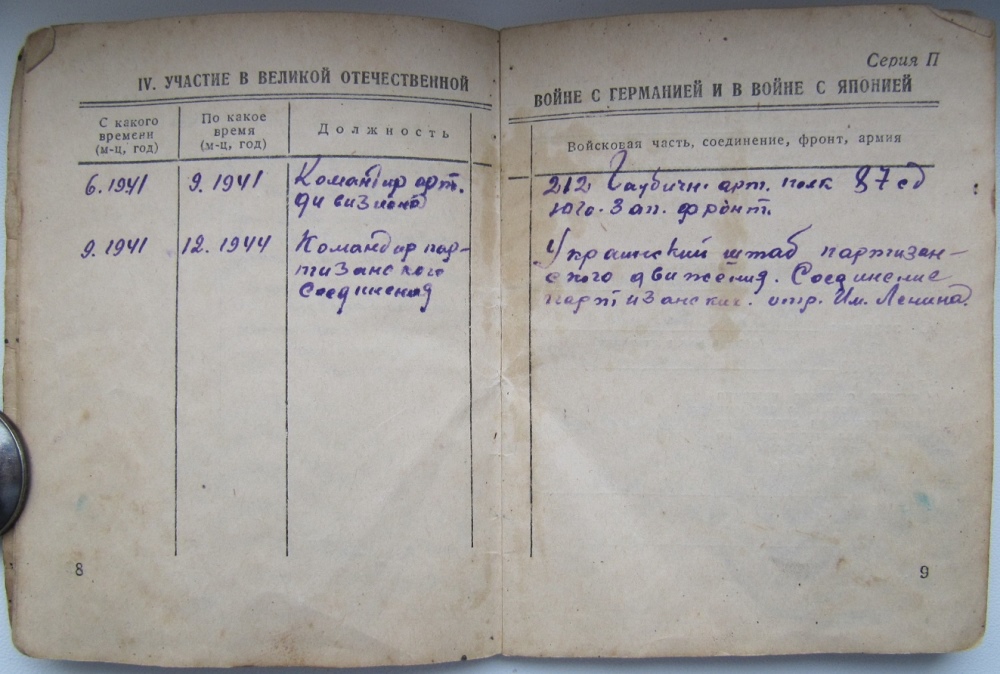 IV. УЧАСТИЕ В ВЕЛИКОЙ ОТЕЧЕСТВЕННОЙ
С какого времени (м-ц, год)
По какое время (м-ц, год)
Должность
6.1941
9.1941
Командир арт.
дивизиона
9.1941
12.1944
Командир пар-
тизанского
соединения
8
Серия П
ВОЙНЕ С ГЕРМАНИЕЙ И В ВОЙНЕ С ЯПОНИЕЙ
Войсковая часть, соединение, фронт, армия
212 Гаубичн. арт. полк 87 сд
Юго. Зап. фронт.
Украинский штаб партизан-
ского движения. Соединение
партизанских. отр. Им. Ленина.
9